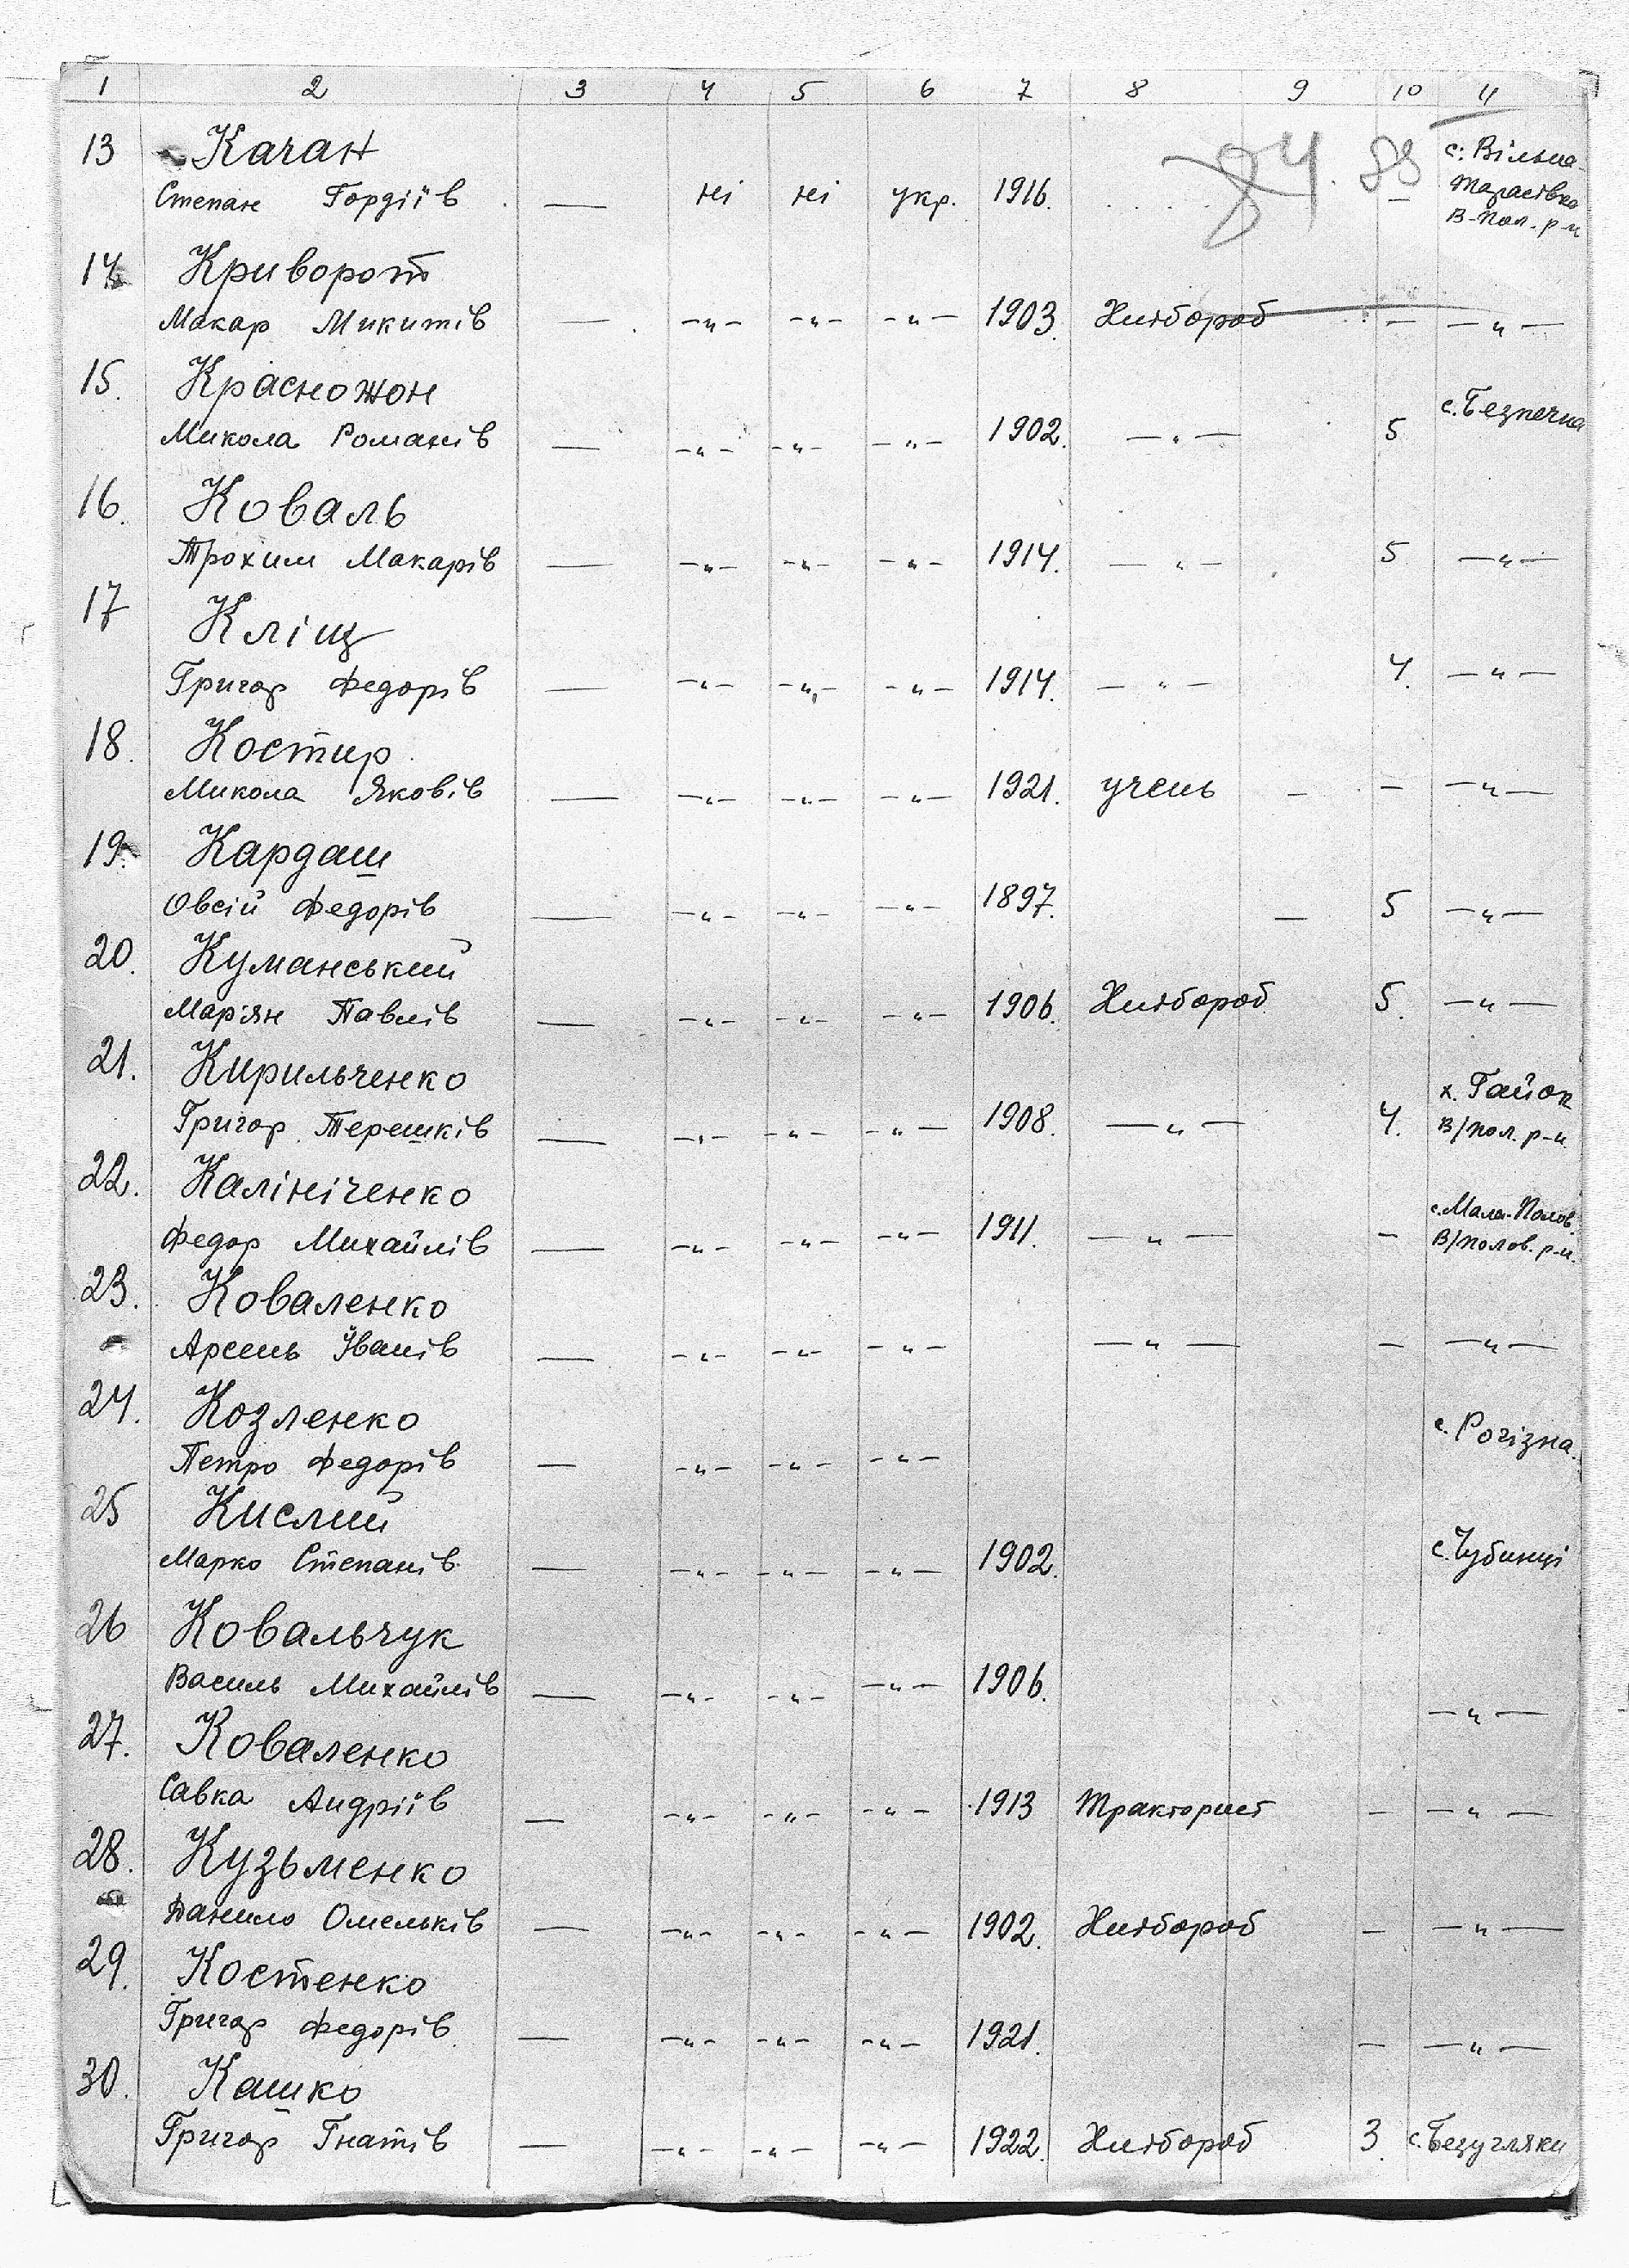 1 2 3 4 5 6 7 8 9 10 11
84. 88
13 Качан с. Вільна-
Степан Гордіїв — ні ні укр. 1916. — Тарасівка
В-Пол. р-н
14. Криворот
Макар Микитів — -„- -„- -„- 1903. Хлібороб — -„-
15. Красножон с. Безпечна
Микола Романів — -„- -„- -„- 1902. -„- 5
16. Коваль
Трохим Макарів — -„- -„- -„- 1914. -„- 5 -„-
17 Кліщ
Григор Федорів — -„- -„- -„- 1914. -„- 4. -„-
18. Костир
Микола Яковів — -„- -„- -„- 1921. учень - - -„-
19. Кардаш
Овсій Федорів — -„- -„- -„- 1897. — 5 -„-
20. Куманський
Мар'ян Павлів — -„- -„- -„- 1906. Хлібороб 5. -„-
21. Кирильченко х. Гайок
Григор Терешків — -„- -„- -„- 1908. -„- 4. В/пол. р-н
22. Калініченко с. Мала-Полов.
Федор Михайлів — -„- -„- -„- 1911. -„- - В/полов. р-н.
23. Коваленко
Арсень Іванів — -„- -„- -„- -„- - -„-
24. Козленко с. Рогізна.
Петро Федорів — -„- -„- -„-
25 Кислий
Марко Степанів — -„- -„- -„- 1902. с. Чубинці
26 Ковальчук
Василь Михайлів — -„- -„- -„- 1906. -„-
27. Коваленко
Савка Андріїв — -„- -„- -„- 1913 Тракторист - -„-
28. Кузьменко
Данило Омельків — -„- -„- -„- 1902. Хлібороб - -„-
29. Костенко
Григор Федорів. — -„- -„- -„- 1921. - -„-
30. Кашко
Григор Гнатів — -„- -„- -„- 1922. Хлібороб 3. с. Безугляки